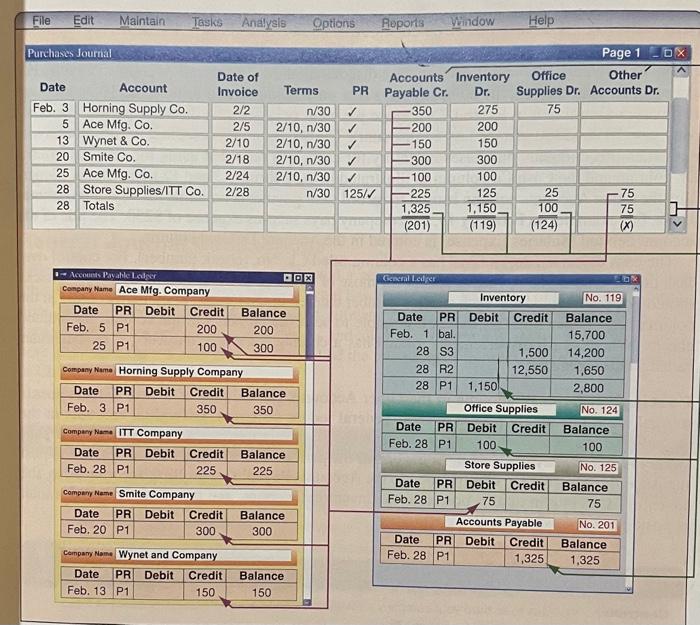 File Edit Maintain Tasks Analysis Options Reports Window Help
Purchases Journal Page 1
Date Account Date of Invoice Terms PR Accounts Payable Cr. Inventory Dr. Office Supplies Dr. Other Accounts Dr.
Feb. 3 Horning Supply Co. 2/2 n/30 ✓ 350 275 75
5 Ace Mfg. Co. 2/5 2/10, n/30 ✓ 200 200
13 Wynet & Co. 2/10 2/10, n/30 ✓ 150 150
20 Smite Co. 2/18 2/10, n/30 ✓ 300 300
25 Ace Mfg. Co. 2/24 2/10, n/30 ✓ 100 100
28 Store Supplies/ITT Co. 2/28 n/30 125/✓ 225 125 25 75
28 Totals 1,325 1,150 100 75
(201) (119) (124) (X)
Accounts Payable Ledger
Company Name Ace Mfg. Company
Date PR Debit Credit Balance
Feb. 5 P1 200 200
25 P1 100 300
Company Name Horning Supply Company
Date PR Debit Credit Balance
Feb. 3 P1 350 350
Company Name ITT Company
Date PR Debit Credit Balance
Feb. 28 P1 225 225
Company Name Smite Company
Date PR Debit Credit Balance
Feb. 20 P1 300 300
Company Name Wynet and Company
Date PR Debit Credit Balance
Feb. 13 P1 150 150
General Ledger
Inventory No. 119
Date PR Debit Credit Balance
Feb. 1 bal. 15,700
28 S3 1,500 14,200
28 R2 12,550 1,650
28 P1 1,150 2,800
Office Supplies No. 124
Date PR Debit Credit Balance
Feb. 28 P1 100 100
Store Supplies No. 125
Date PR Debit Credit Balance
Feb. 28 P1 75 75
Accounts Payable No. 201
Date PR Debit Credit Balance
Feb. 28 P1 1,325 1,325